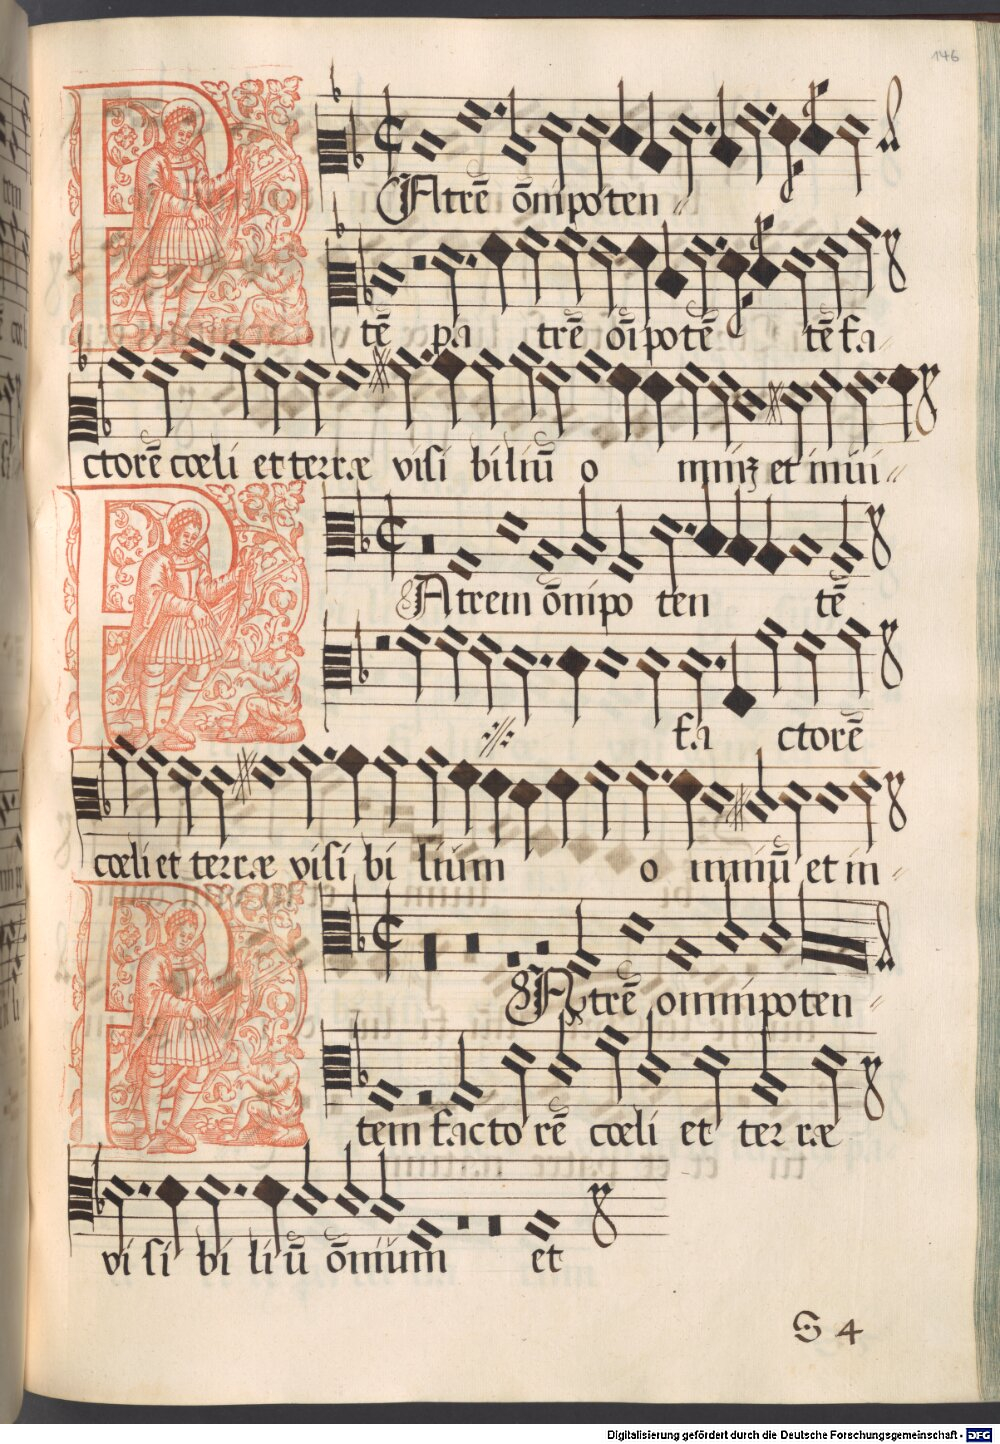 146
PAtrē ōnipoten
tē pa trē oīpotē tē fa
ctorē cœli et terræ visi biliū o mniꝫ et invi
PAtrem ōnipo ten tē
fa ctorē
cœli et terræ visi bi lium o mniū et in
PAtrē omnipoten
tem facto rē cœli et ter ræ
vi si bi li ū ōnium et
S 4
Digitalisierung gefördert durch die Deutsche Forschungsgemeinschaft - DFG